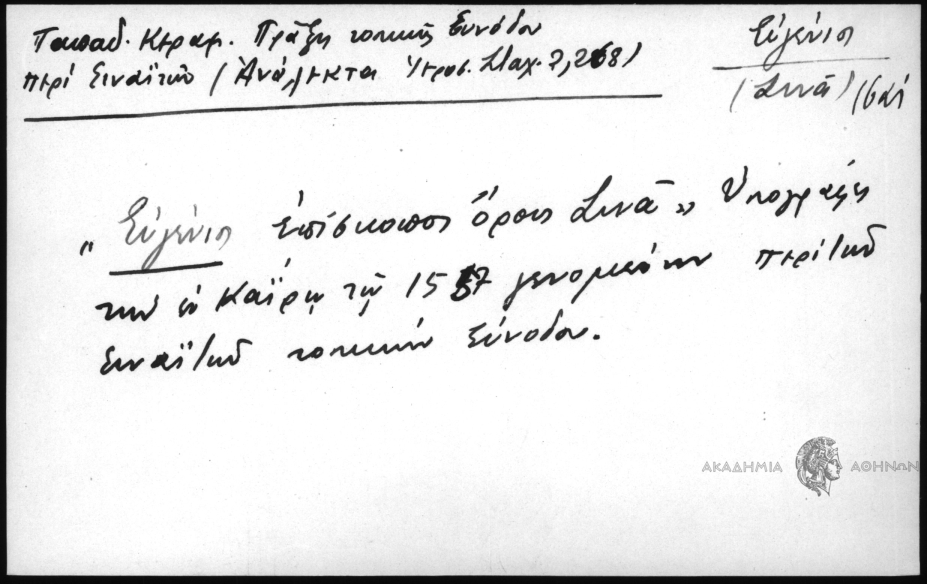 Παπαδ. Κεραμ. Πράξη τοπικῆς Συνόδου
περί Σιναϊτῶν (Ἀνάλεκτα Ἱεροσ. Σταχ. 2, 268)
Εὐγένιος
(Σινᾶ)
„Εὐγένιος ἐπίσκοπος ὄρους Σινᾶ„ Ὑπογράψας
τήν ἐν Καΐρῳ τῷ 1557 γενομένην περί τῶν
Σιναϊτῶν τοπικήν Σύνοδον.
ΑΚΑΔΗΜΙΑ ΑΘΗΝΩΝ